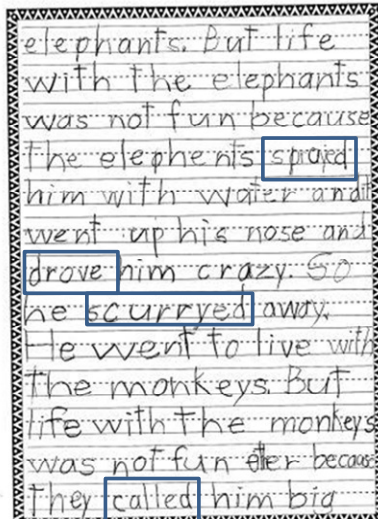 elephants. But life
with the elephants
was not fun because
the elephents sprayed
him with water andit
went up his nose and
drove him crazy. So
he scurryed away.
He went to live with
the monkeys. But
life with the monkeys
was not fun ether because
they called him big